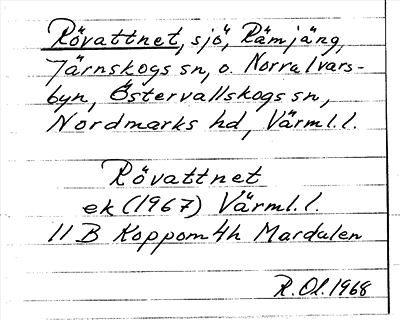 Rövattnet, sjö, Rämjäng,
Järnskogs sn, o. Norra Ivars-
byn, Östervallskogs sn,
Nordmarks hd, Värml.l.
Rövattnet
ek (1967) Värml.l.
11 B Koppom 4h Mardalen
R. Ol. 1968